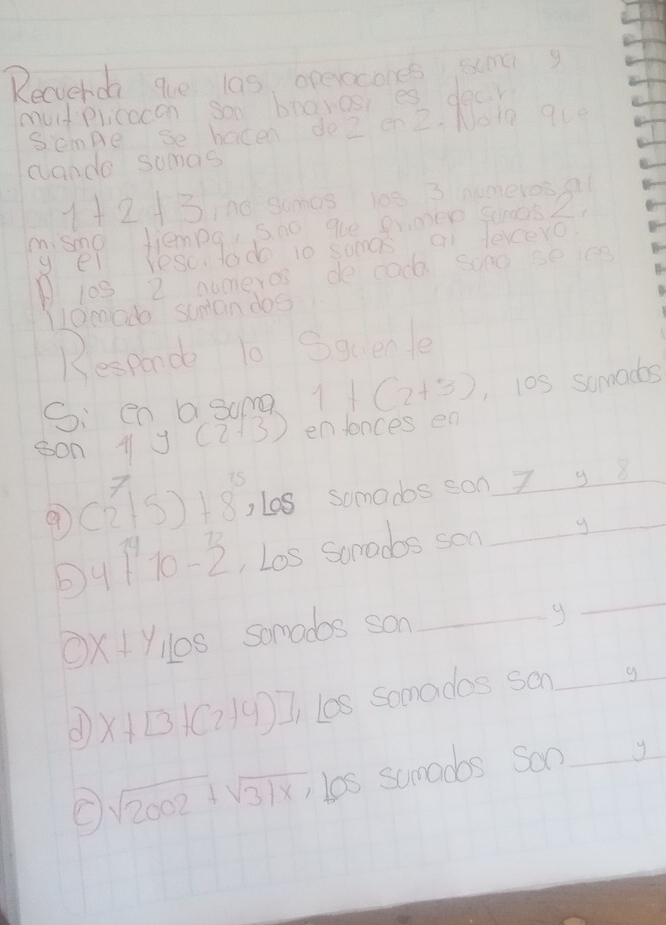 Recuerda que las operaciones suma y
multiplicacon son binarios, es decir
siempre se hacen de 2 en 2. Nota que
cuando sumas
1 + 2 + 3, no sumas los 3 numeros al
mismo tiempo, sino que primero sumas 2,
y el resultado lo sumas al tercero.
los 2 numeros de cada suma se les
llamada sumandos
Responde lo Sguiente
Si en la suma 1 + (2+3), los sumados
son 1 y (2+3) entonces en
7 15
a) (2+5) + 8, Los sumados son 7 y 8
14 12
b) 4 + 10 - 2, Los sumados son ____ y ____
c) x + y, los somados son ____ y ____
d) x + [3 + (2+4)], Los somados son ____ y
e) √2002 + √31x, los sumados son ____ y